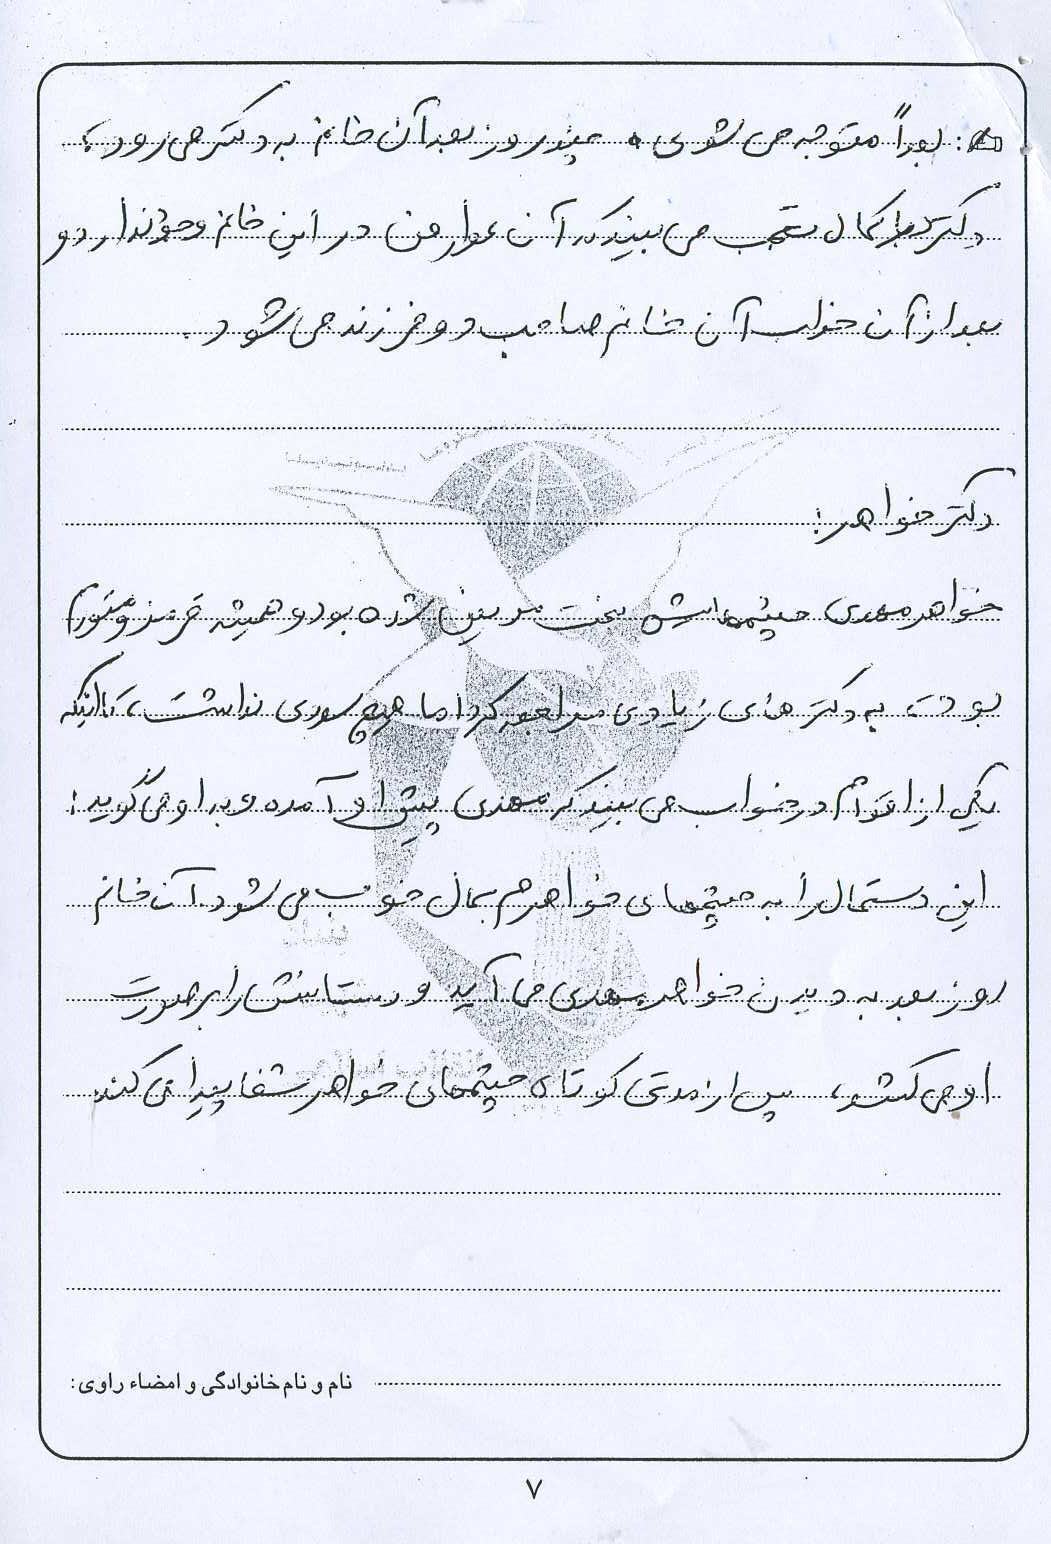 : بعداً متوجه می شوی. چند روز بعد آن خانم به دکتر می رود،
دکتر با کمال تعجب می بیند که آن عوارض در این خانم وجود ندارد و
بعد از آن خواب آن خانم صاحب دو فرزند می شود.
دکتر خواهر:
خواهر مهدی چشمهایش سخت مریض شده بود و همیشه قرمز و متورم
بود، به دکترهای زیادی مراجعه کرد اما هیچ سودی نداشت، تا اینکه
یکی از اقوام در خواب می بیند که مهدی پیش او آمده و به او می گوید:
این دستمال را به چشمهای خواهرم بمال خوب می شود. آن خانم
روز بعد به دیدن خواهر مهدی می آید و دستانش را بر صورت
او می کشد، پس از مدتی کوتاه چشمهای خواهر شفا پیدا می کند.
نام و نام خانوادگی و امضاء راوی:
۷